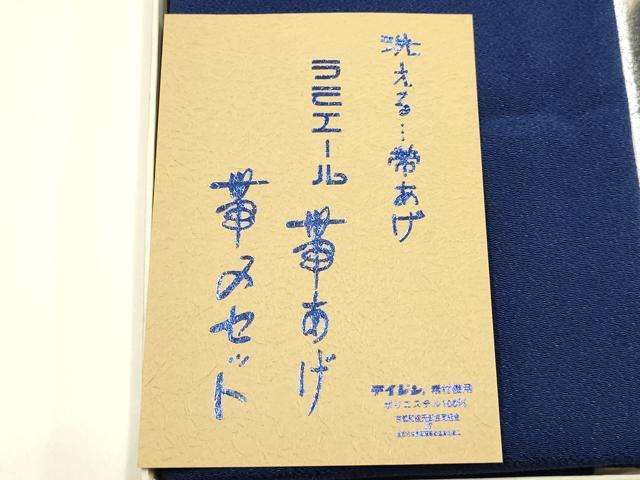 洗える…帯あげ
ラミエール
帯あげ
帯〆セット
テイジン。素材使用
ポリエステル100%